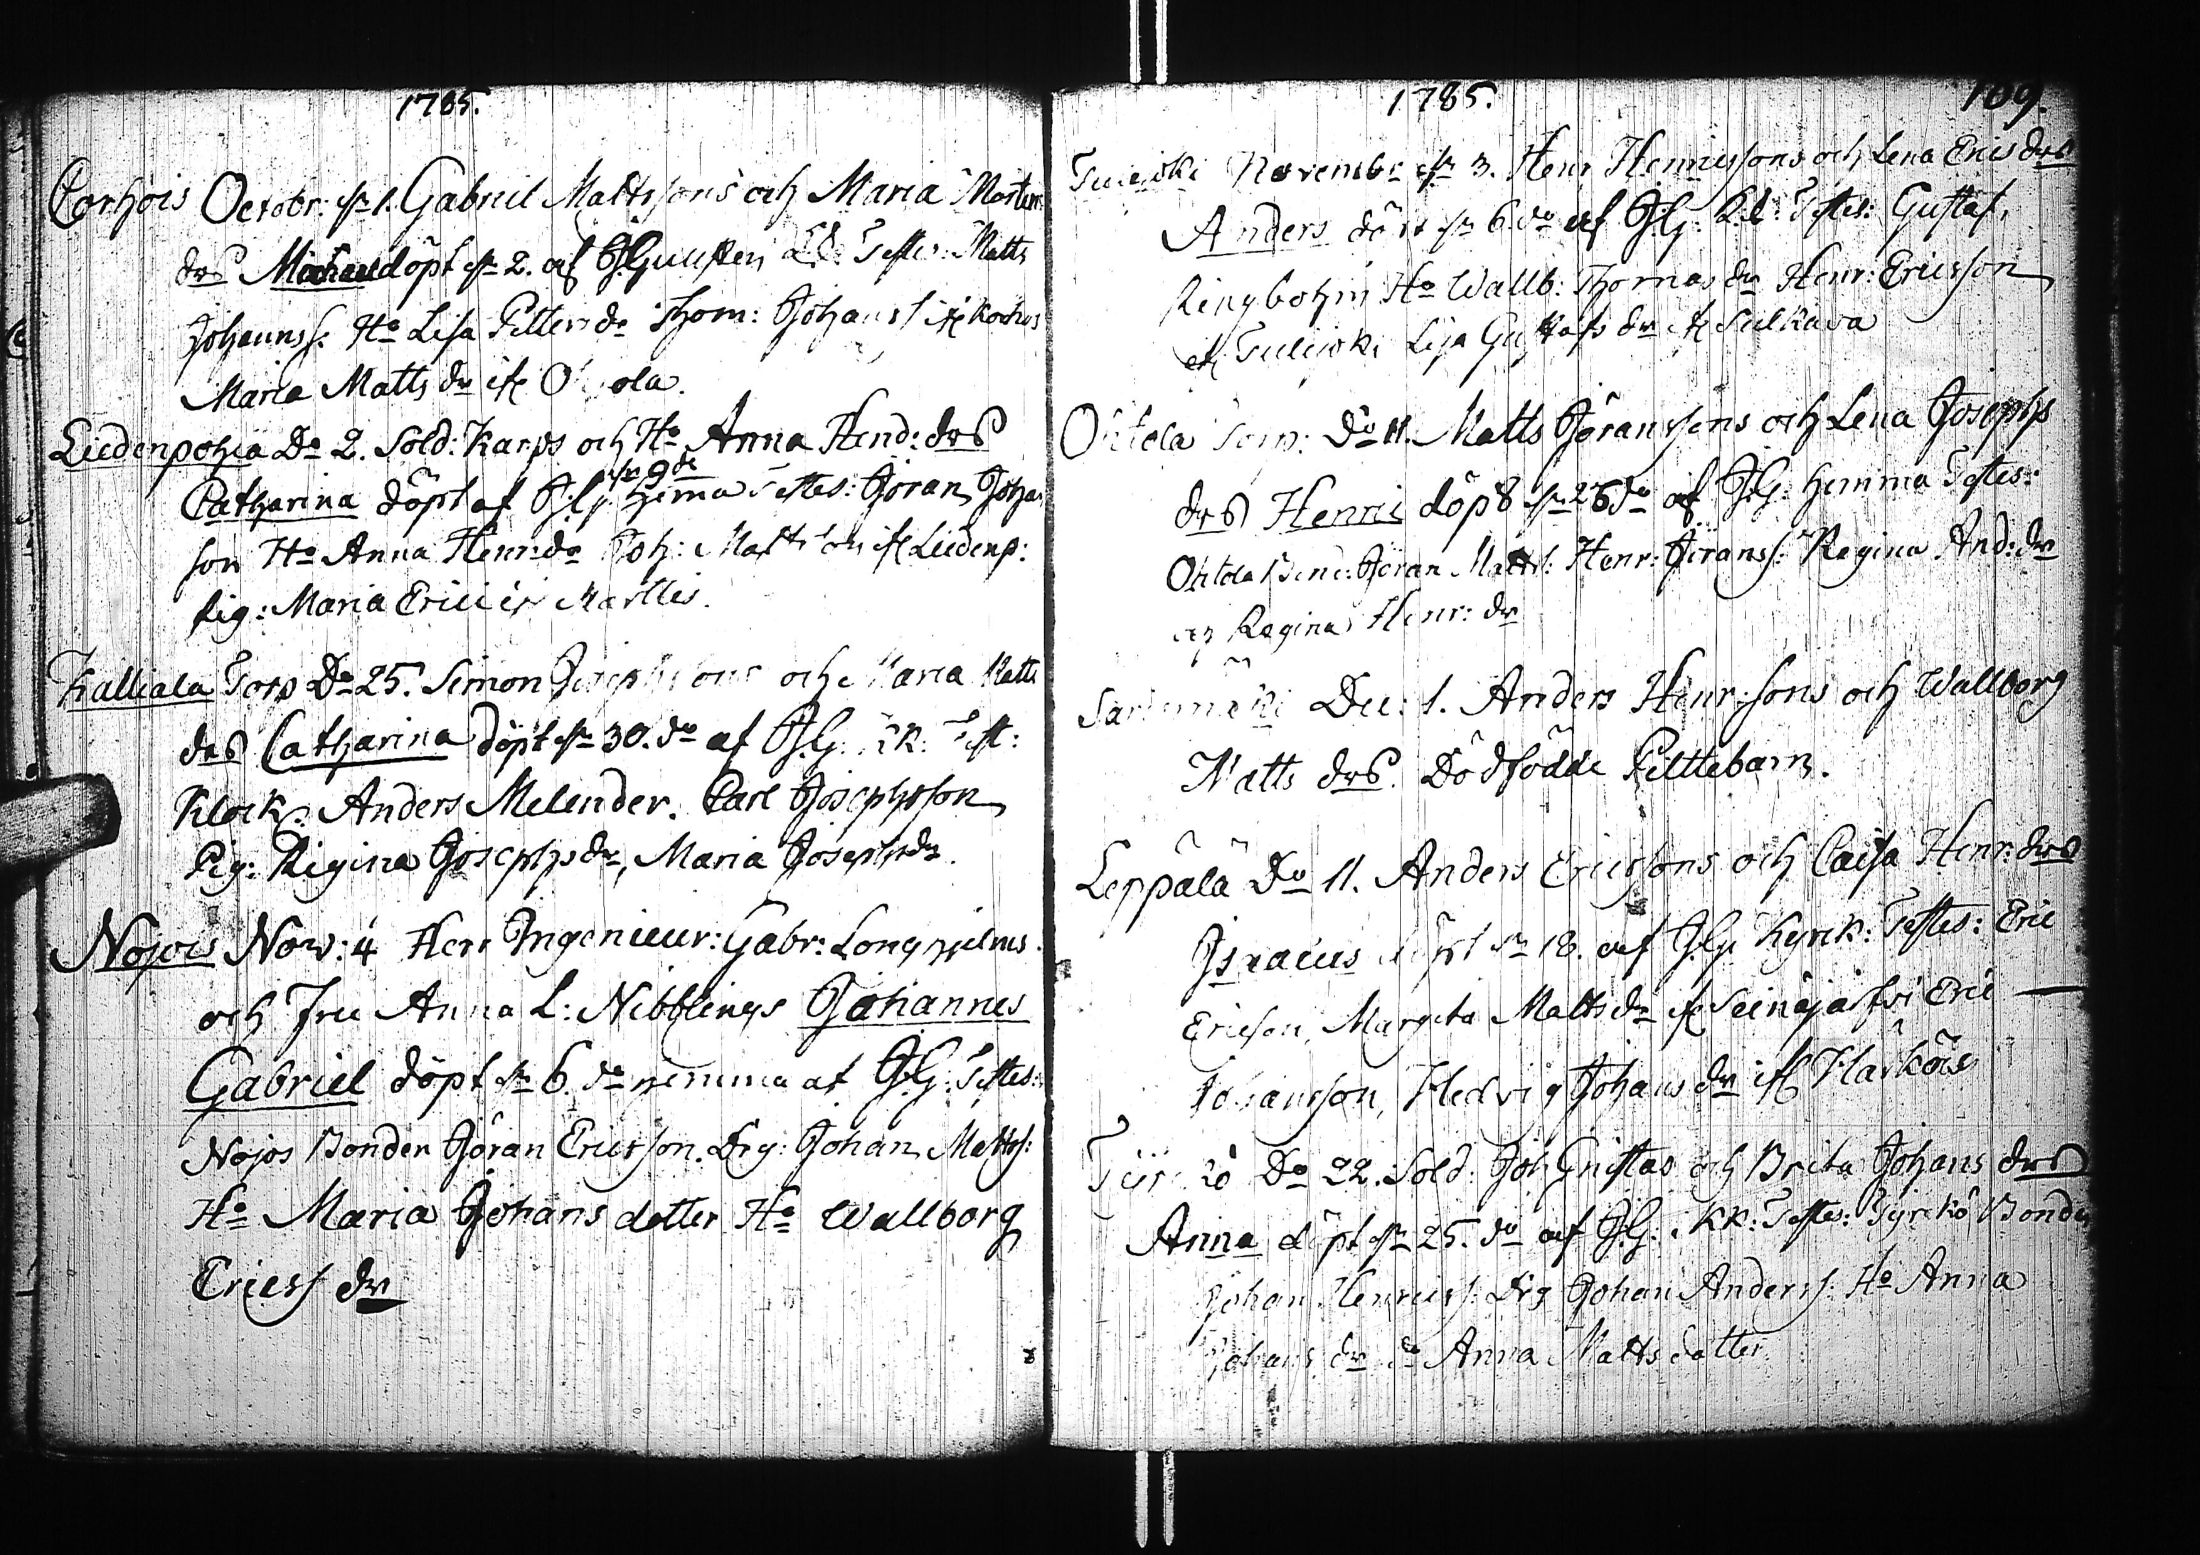 1785.
Corhois Octobr: d. 1. Gabriel Mattssons och Maria Morten
drs Michael döpt d. 2. af Testes: Matts
Johanns. Ho Lisa Petters do Thom: Johanss if Korhos
Maria Matts dr if ola.
Liedenpohia Do 2. Sold: Karps och Ho Anna Hend: drs
d. 9de
Catharina döpt af J:G: hema Testes: Göran Johan
son Ho Anna Henr: do Joh: Mattsson if Liedenp:
Pig: Maria Martlis.
Kalliala Torp Do 25. Simon Josephsons och Maria Matts
drs Catharina döpt d. 30. do af J.G: KK: Test:
Klock: Anders Melender. Carl Josephsson
Pig: Rigina Josephs dr, Maria Josephs dr.
Nojois Nov: 4 Herr Ingenieur: Gabr: Longhjelms
och Fru Anna L: Nibblings Johannes
Gabriel döpt d. 6. do hemma af J.G: Testes:
Nojos Bonden Göran Ericsson. Drg: Johan Mattss:
Ho Maria Johans dotter Ho Wallborg
Ericss dr
1785. 109.
Novembr d. 3. Henr Henricssons och Lena Erics drs
Anders döpt d. 6. do af J.G: Testes: Gustaf
Ringbohm Ho Wallb: Thomas dr Henr: Ericsson
Lisa Gustafs dr if Sulkava
Ohtola Do 11. Matts Göranssons och Lena Josephs
drs Henric döpt d. 26 do af J.G: hemma Testes:
Ohtola Bond: Göran Matts: Henr: Göranss: Regina And: dr
Regina Henr: dr
Dec: 1. Anders Henr:sons och Wallborg
Matts drs. Dödfödde Piltebarn.
Leppälä Do 11. Anders Ericssons och Caisa Henr: drs
Israeus döpt d. 18. af J.G: Kyrk: Testes: Eric
Ericson, Margeta Matts dr if Seinäjarfvi Eric
Johansson, Hedvig Johans dr if Harköis
Do 22. Sold: Joh Gnistas och Brita Johans drs
Anna döpt d. 25. do af J.G: i KK: Testes: Tyrckö Bonden
Johan Henricss: Drg Johan Anderss: Ho Anna
Johans dr do Anna Matts dotter